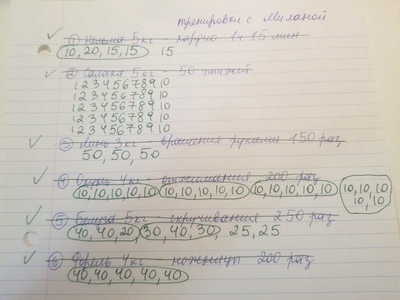 тренировки с Миланой
① Нельма 5кг - кардио 1ч 15 мин
10, 20, 15, 15 15
② Салака 5кг - 50 этажей
1 2 3 4 5 6 7 8 9 10
1 2 3 4 5 6 7 8 9 10
1 2 3 4 5 6 7 8 9 10
1 2 3 4 5 6 7 8 9 10
1 2 3 4 5 6 7 8 9 10
③ Линь 3кг - вращения руками 150 раз
50, 50, 50
④ Окунь 4кг - отжимания 200 раз
10, 10, 10, 10, 10 10, 10, 10, 10, 10 10, 10, 10, 10, 10 10, 10, 10
10, 10
⑤ Белуга 5кг - скручивания 250 раз
40, 40, 20 30, 40, 30, 25, 25
⑥ Форель 4кг - ножницы 200 раз
40, 40, 40, 40, 40